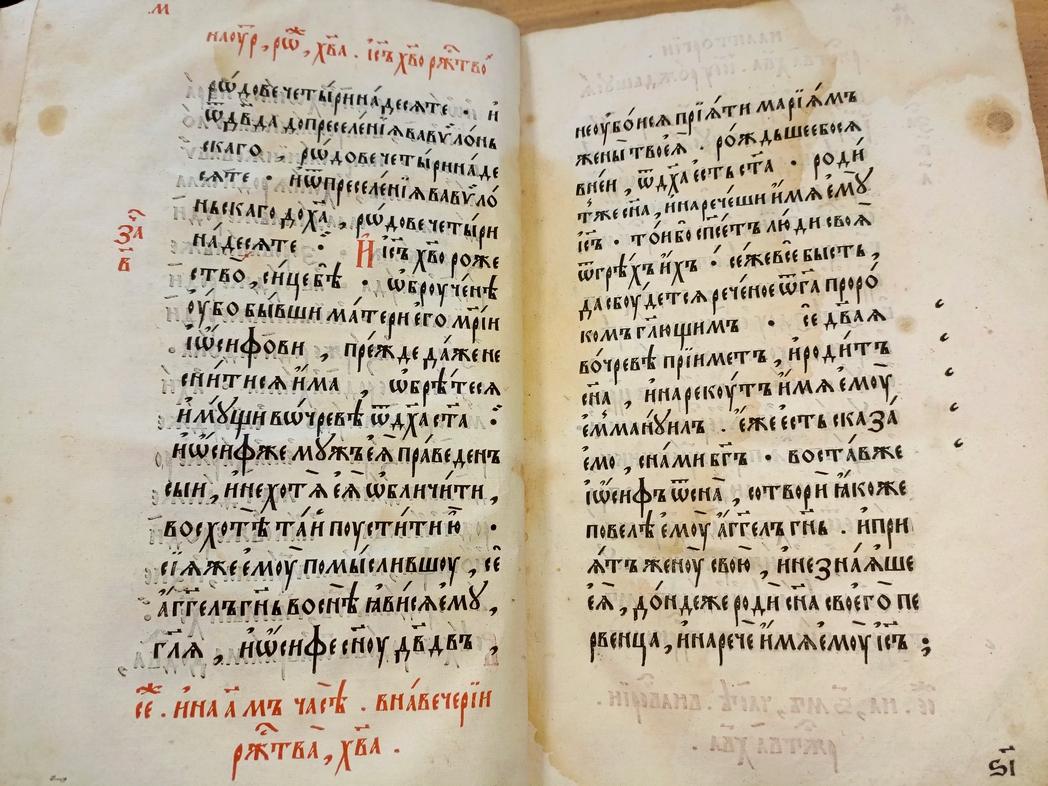 м҃
наоу҃р, рѡⷤ҇, хв҃а. і҆с҃ъ хв҃о рж҃тво̀
рѡ́дове четы́ри на́десѧте · и҆
ѿдв҃да допреселе́нїѧ вавѷло́нь
скаго, рѡ́дове четы́ри на́де
сѧте · и҆ѿпреселе́нїѧ вавѷло́
ньскаго до ха҃, рѡ́дове четы́ри
на́десѧте ·
И҆ і҆с҃ъ хв҃о роже
за҃
в҃
ство̀, си́це бѣ̀ · ѡ҆броуче́нѣ
оу҆́бо бы́вши ма́тери е҆го мр҃їи
і҆ѡ́сифови, пре́жде да́же не
сни́тисѧ и҆́ма ѡ҆брѣ́тесѧ
и҆мꙋщи во́чревѣ ѿдх҃а ст҃а ·
и҆ѡ́сифже мꙋ́жъ еѧ̀ пра́веденъ
сыи, и҆нехотѧ̀ еѧ̀ ѡ҆бличи́ти,
восхотѣ̀ та́й поусти́ти ю҆̀ ·
сїѧ́же е҆моу̀ помы́слившоу, се̑
а҆́гг҃елъ гн҃ь во снѣ̀ ꙗ҆ви́сѧ е҆мꙋ̀,
гл҃ѧ, и҆ѡ́сифе сн҃оу дв҃двъ,
се̑. и҆ на а҃мъ часѣ̀. в наве́черїи
рж҃тва̀, хв҃а.
неоу҆бо́исѧ прїѧ́ти марїѧ́мъ
жены̀ твоеѧ̀. ро́ждьшеебосѧ
вне́и, ѿдх҃а е҆́сть ст҃а · роди́
тже сн҃а, и҆нарече́ши и҆́мѧ е҆мꙋ̀
і҆с҃ъ · то́и бо спⷭ҇е́тъ лю́ди своѧ̀
ѿгрѣ́хъ и҆́хъ · се́же все̑ бысть,
да сбоу́детсѧ рече́ное ѿг҃а проро́
комъ гл҃ющимъ · се̑ дв҃аѧ
во́чревѣ прїиметъ, и҆роди́тъ
сн҃а, и҆нарекоу́тъ и҆́мѧ е҆моу̀
е҆ммануилъ. е҆́же е҆́сть сказа́
емо, с на́ми бг҃ъ · воста́вже
і҆ѡ́сифъ ѿсна̀, сотворѝ ꙗ҆́коже
повелѣ̀ е҆моу̀ а҆́гг҃елъ гн҃ь. и҆при
ѧ́тъ женоу̀ свою̀, и҆незна́ѧше
еѧ̀, до́ндеже родѝ сн҃а своего̀ пе
рвенца, и҆наречѐ и҆́мѧ е҆моу̀ і҆с҃ъ ;
ѕ҃і